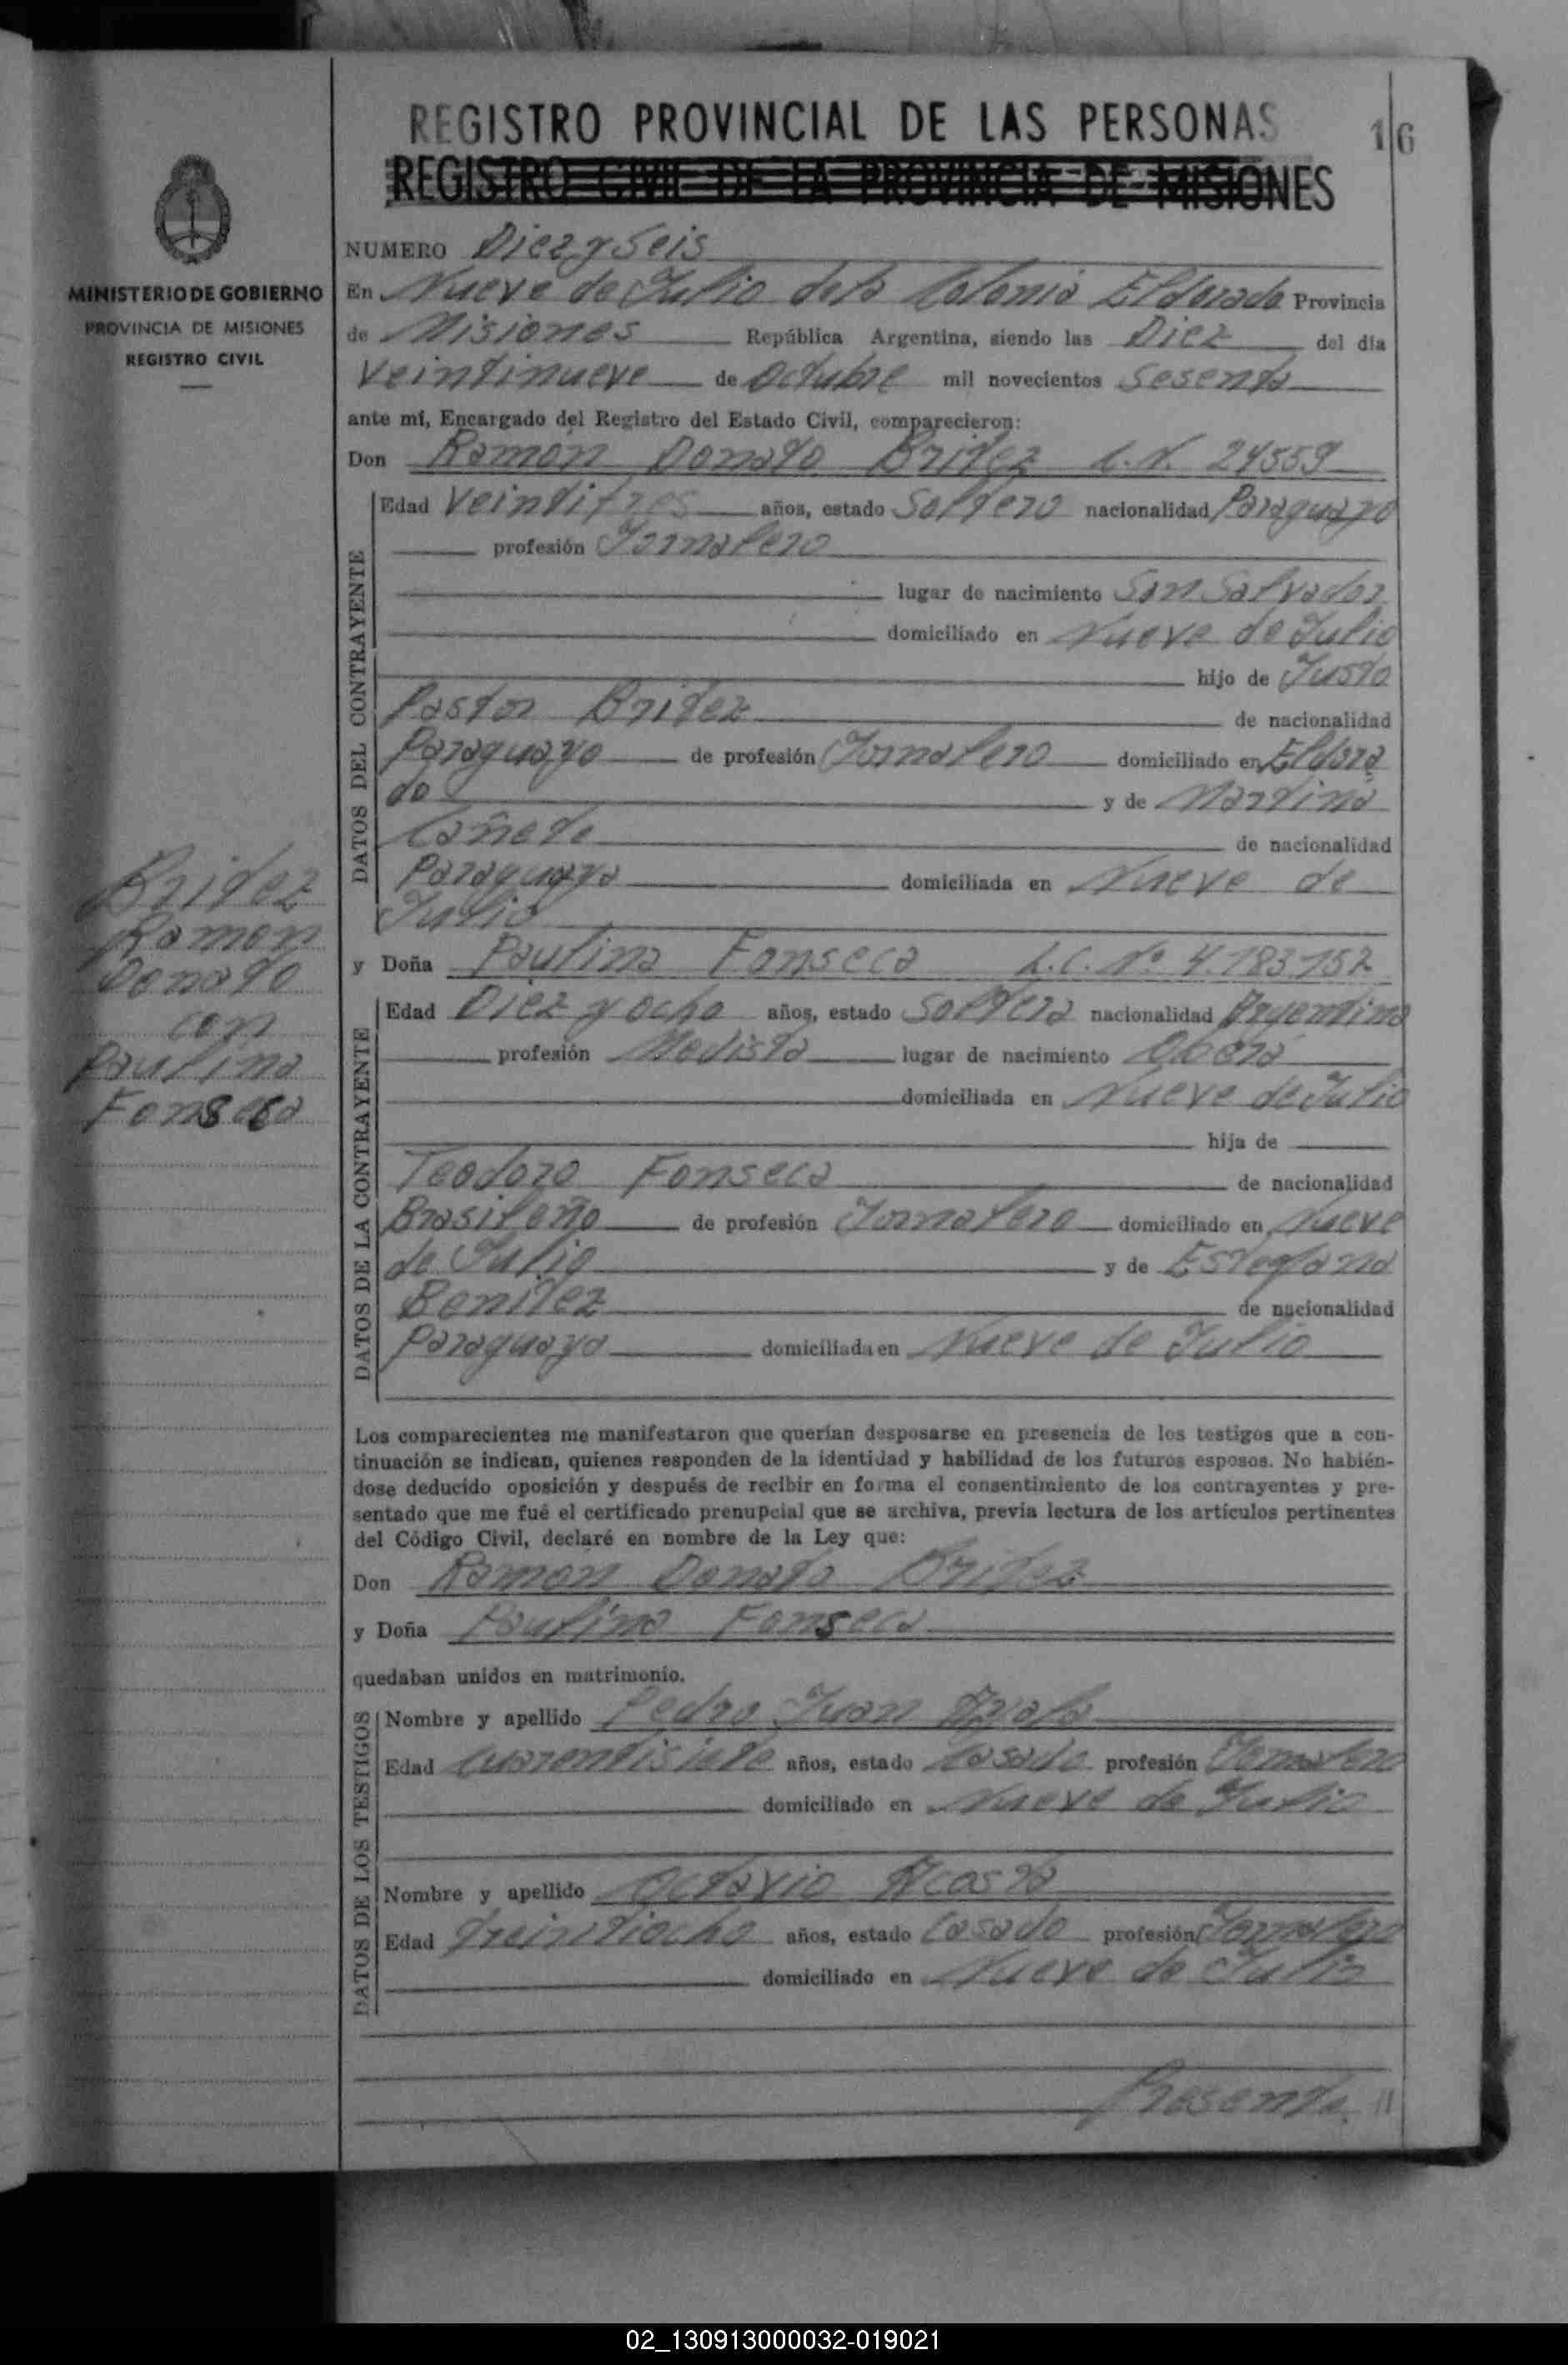 REGISTRO PROVINCIAL DE LAS PERSONAS
16
REGISTRO CIVIL DE LA PROVINCIA DE MISIONES
MINISTERIO DE GOBIERNO
PROVINCIA DE MISIONES
REGISTRO CIVIL
NUMERO Diez y Seis
En Nueve de Julio de la Colonia Eldorado Provincia
de Misiones República Argentina, siendo las Diez del día
Veintinueve de Octubre mil novecientos Sesenta
ante mí, Encargado del Registro del Estado Civil, comparecieron:
Don Ramón Donato Britez L.N. 24559
DATOS DEL CONTRAYENTE
Edad Veintitres años, estado Soltero nacionalidad Paraguayo
profesión Jornalero
lugar de nacimiento San Salvador
domiciliado en Nueve de Julio
hijo de Justo
Pastor Britez de nacionalidad
Paraguayo de profesión Jornalero domiciliado en Eldora
do y de Martina
Cañete de nacionalidad
Paraguaya domiciliada en Nueve de
Julio
Britez
Ramon
Donato
con
Paulina
Fonseca
y Doña Paulina Fonseca L.C. Nº 4.183.152
DATOS DE LA CONTRAYENTE
Edad Diez y ocho años, estado Soltera nacionalidad Argentina
profesión Modista lugar de nacimiento Oberá
domiciliada en Nueve de Julio
hija de
Teodoro Fonseca de nacionalidad
Brasileño de profesión Jornalero domiciliado en Nueve
de Julio y de Estefana
Benitez de nacionalidad
Paraguaya domiciliada en Nueve de Julio
Los comparecientes me manifestaron que querían desposarse en presencia de los testigos que a con-
tinuación se indican, quienes responden de la identidad y habilidad de los futuros esposos. No habién-
dose deducido oposición y después de recibir en forma el consentimiento de los contrayentes y pre-
sentado que me fué el certificado prenupcial que se archiva, previa lectura de los artículos pertinentes
del Código Civil, declaré en nombre de la Ley que:
Don Ramón Donato Britez
y Doña Paulina Fonseca
quedaban unidos en matrimonio.
DATOS DE LOS TESTIGOS
Nombre y apellido Pedro Juan Ayala
Edad Cuarentisiete años, estado Casado profesión Jornalero
domiciliado en Nueve de Julio
Nombre y apellido Octavio Acosta
Edad treintiocho años, estado Casado profesión Jornalero
domiciliado en Nueve de Julio
Presente. //
02_130913000032-019021